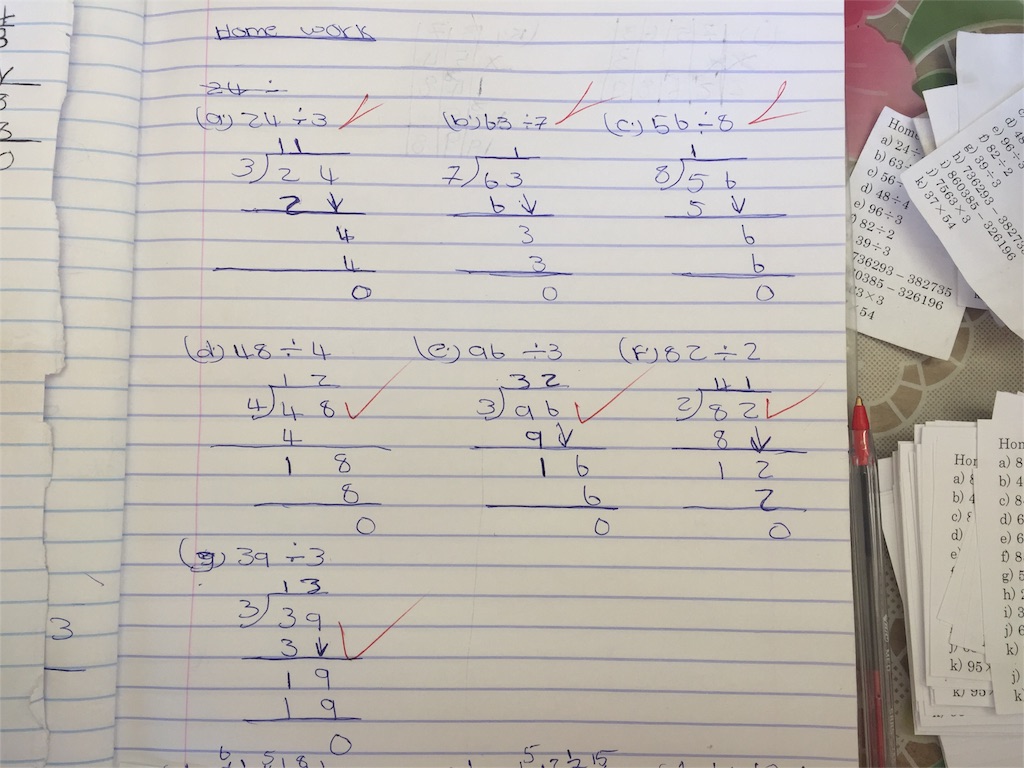 Home work
24 ÷
(a) 24 ÷ 3 (b) 63 ÷ 7 (c) 56 ÷ 8
11 1 1
3)24 7)63 8)56
2 ↓ 6 ↓ 5 ↓
4 3 6
4 3 6
0 0 0
(d) 48 ÷ 4 (e) 96 ÷ 3 (f) 82 ÷ 2
12 32 41
4)48 3)96 2)82
4 9 ↓ 8 ↓
1 8 1 6 1 2
8 6 2
0 0 0
(g) 39 ÷ 3
13
3)39
3 ↓
1 9
1 9
0
3
3
3
0
3
a) 24÷
b) 63
c) 56
d) 48÷4
e) 96÷3
82÷2
39÷3
736293 − 382735
60385 − 326196
3×3
×54
e) 96÷3
f) 82÷2
g) 39÷3
h) 736293 − 382735
i) 860385 − 326196
j) 7563×3
k) 37×54
a) 8
b) 4
c) 8
d)
e)
k) 95×
a) 8
b) 4
c) 8
d) 6
e) 6
f) 8
g) 5
h) 2
i) 3
j) 6
k)
j)
k